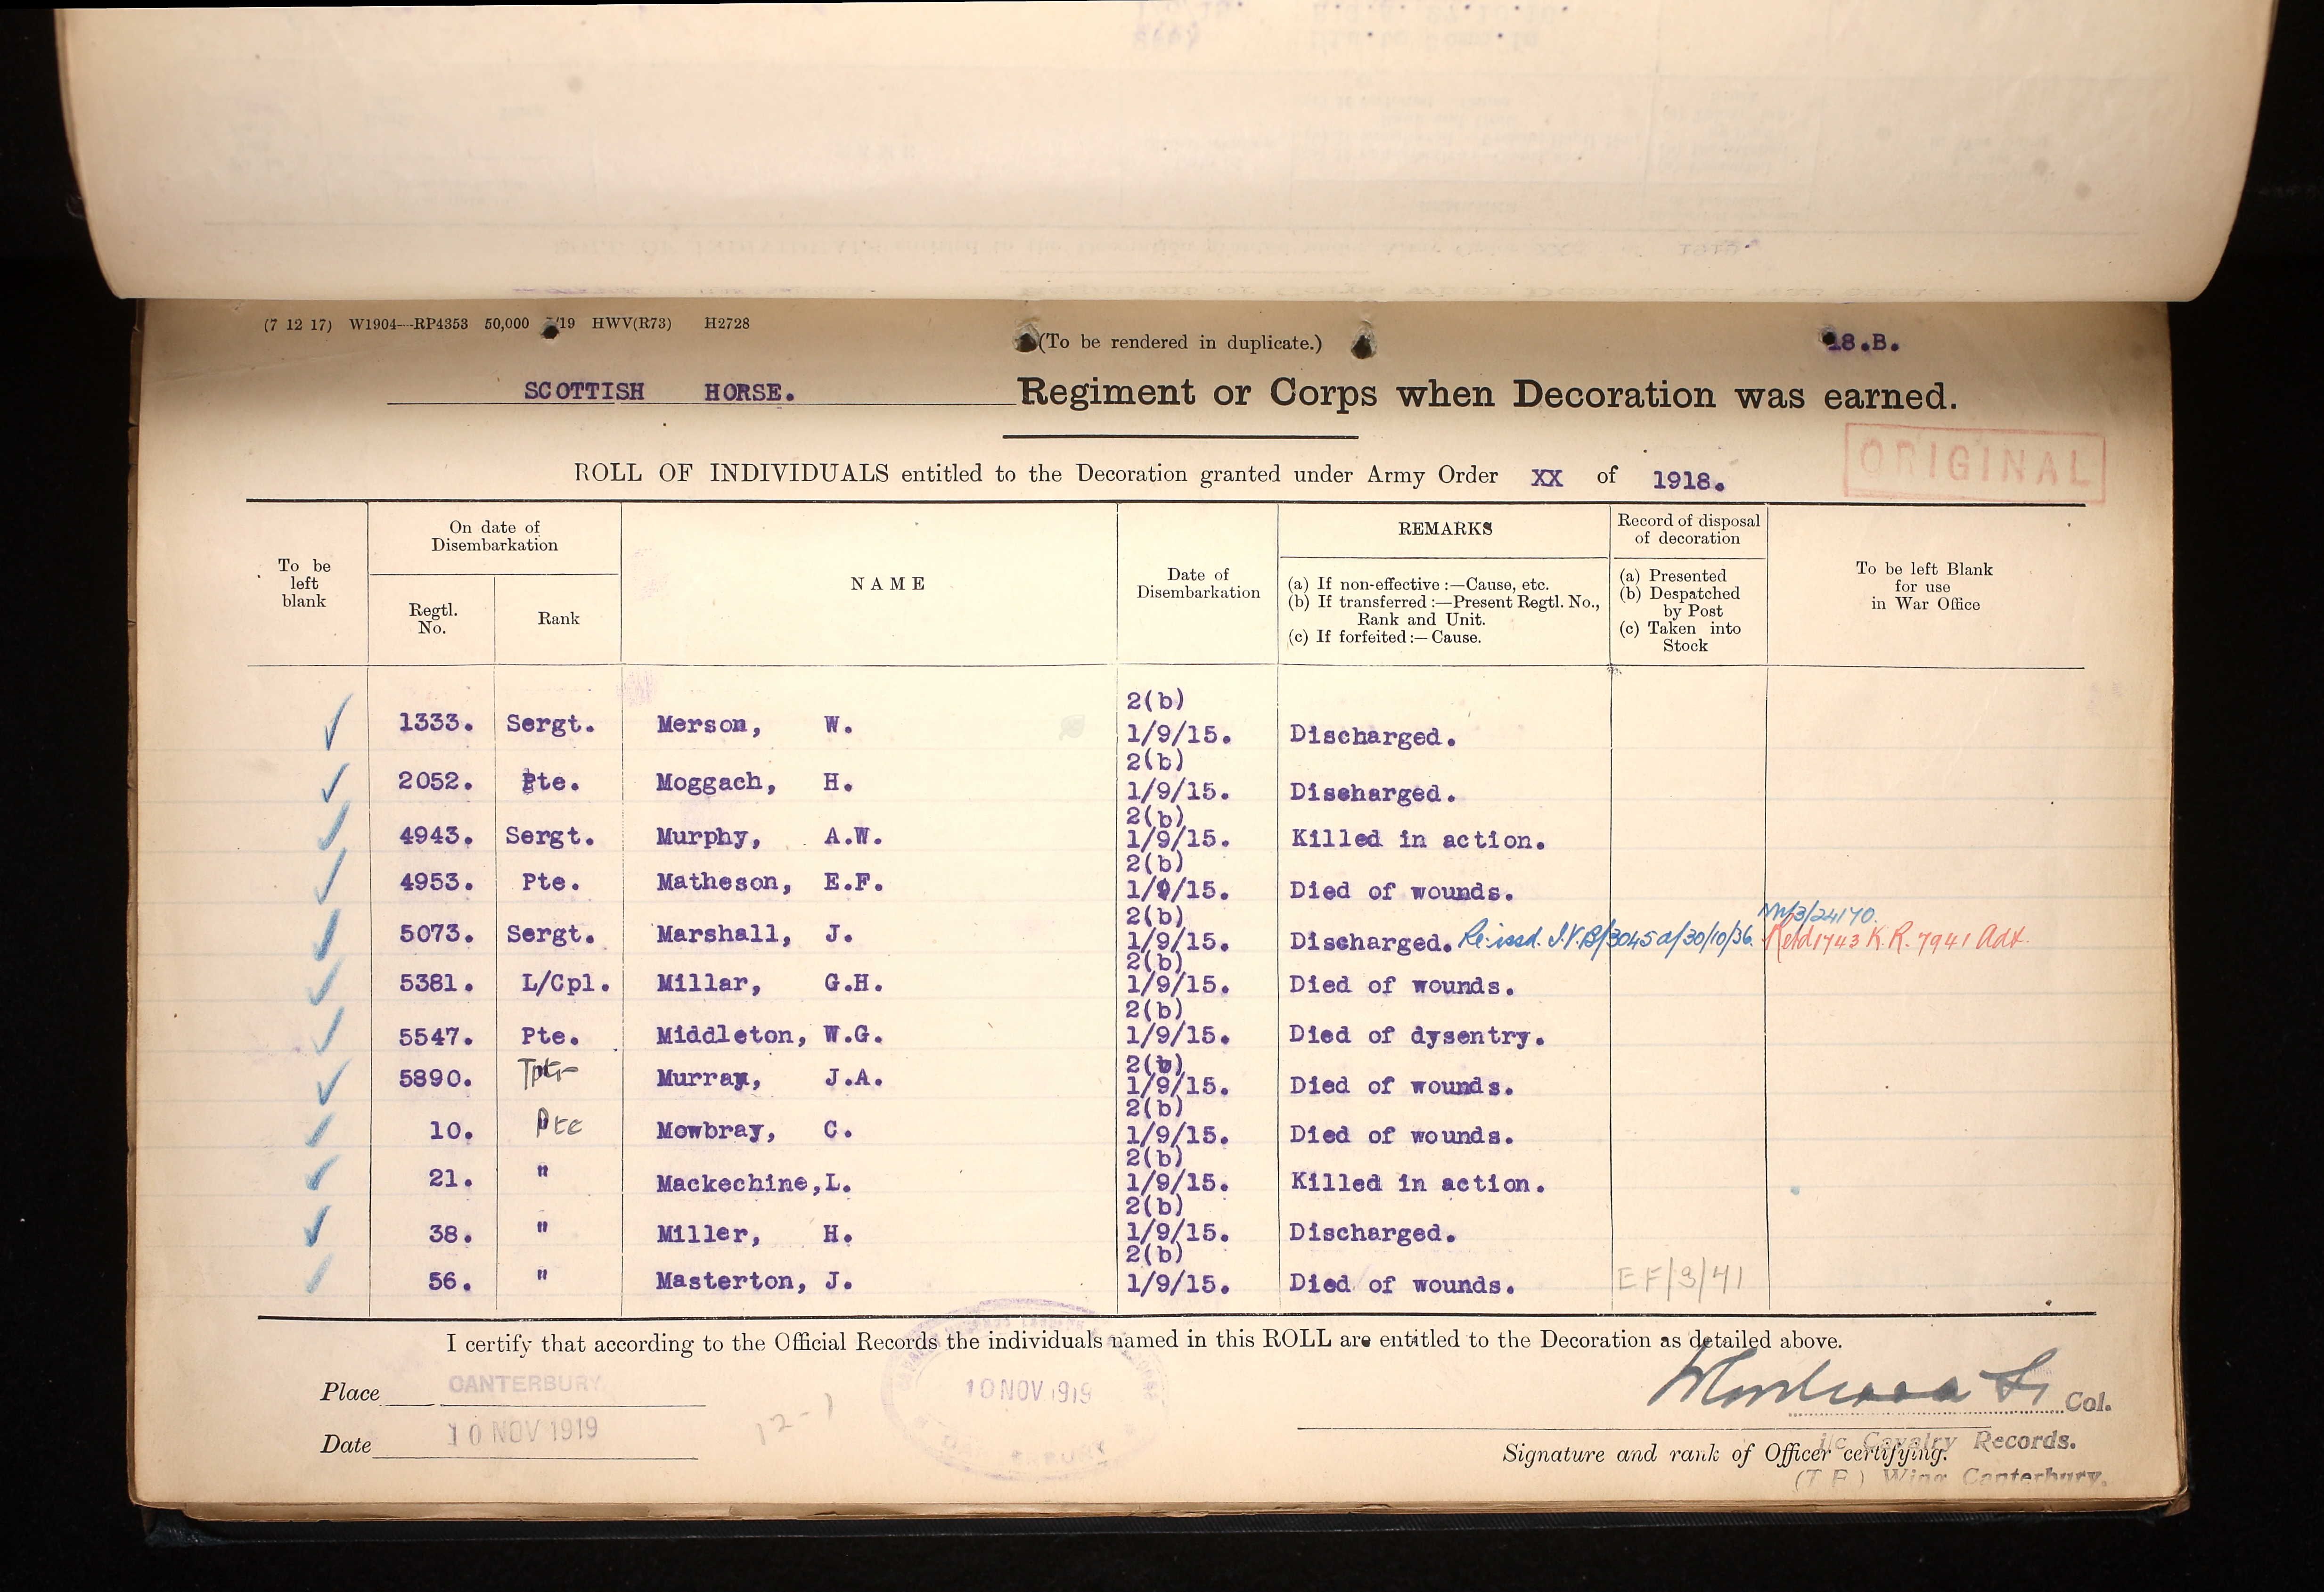 (7 12 17) W1904—RP4353 50,000 /19 HWV(R73) H2728
(To be rendered in duplicate.)
18.B.
SCOTTISH HORSE. Regiment or Corps when Decoration was earned.
ORIGINAL
ROLL OF INDIVIDUALS entitled to the Decoration granted under Army Order XX of 1918.
To be left blank
On date of Disembarkation
Regtl. No.
Rank
NAME
Date of Disembarkation
REMARKS
(a) If non-effective :—Cause, etc.
(b) If transferred :—Present Regtl. No., Rank and Unit.
(c) If forfeited :— Cause.
Record of disposal of decoration
(a) Presented
(b) Despatched by Post
(c) Taken into Stock
To be left Blank for use in War Office
2(b)
1333. Sergt. Merson, W. 1/9/15. Discharged.
2(b)
2052. Pte. Moggach, H. 1/9/15. Discharged.
2(b)
4943. Sergt. Murphy, A.W. 1/9/15. Killed in action.
2(b)
4953. Pte. Matheson, E.F. 1/9/15. Died of wounds.
2(b) /3/24170.
5073. Sergt. Marshall, J. 1/9/15. Discharged. Re-issd. I.V.B/3045 d/30/10/36. Retd 1743 K.R. 7941 Adt.
2(b)
5381. L/Cpl. Millar, G.H. 1/9/15. Died of wounds.
2(b)
5547. Pte. Middleton, W.G. 1/9/15. Died of dysentry.
2(b)
5890. Tptr Murray, J.A. 1/9/15. Died of wounds.
2(b)
10. Pte Mowbray, C. 1/9/15. Died of wounds.
2(b)
21. " Mackechine, L. 1/9/15. Killed in action.
2(b)
38. " Miller, H. 1/9/15. Discharged.
2(b)
56. " Masterton, J. 1/9/15. Died of wounds. EF/3/41
I certify that according to the Official Records the individuals named in this ROLL are entitled to the Decoration as detailed above.
Place CANTERBURY
10 NOV 1919
12-1
Col.
Date 10 NOV 1919
i/c Cavalry Records.
Signature and rank of Officer certifying.
(T.F.) Wing Canterbury.